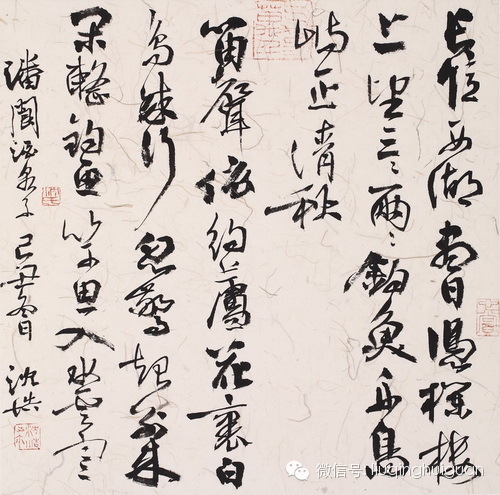 長憶西湖盡日憑欄樓
上望三〻兩〻釣魚舟島
嶼正清秋
笛聲依約蘆花裏白
鳥成行忽驚起別來
閑整釣魚竿思入水雲寒
潘閬酒泉子 己丑春日
微信号: liuqinghuiguan